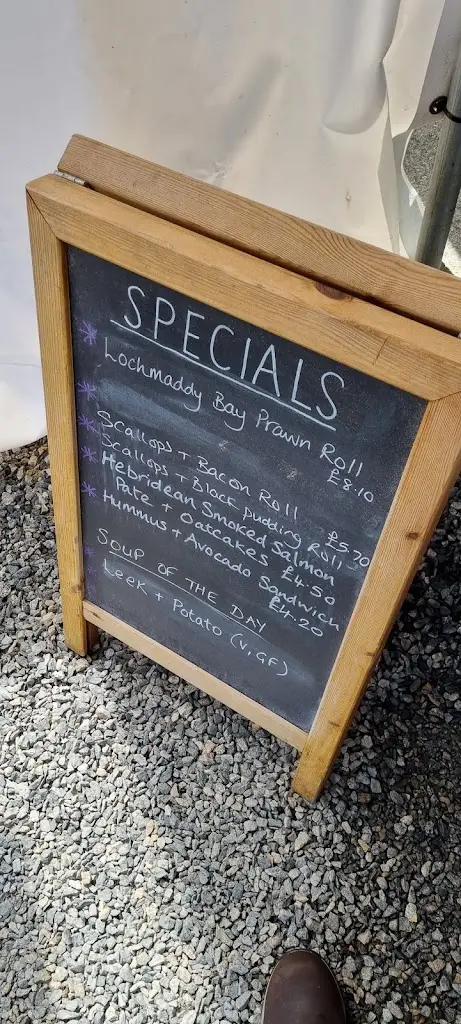 SPECIALS
* Lochmaddy Bay Prawn Roll
£8.10
*
* Scallops + Bacon Roll
* Scallops + Black pudding Roll £5.70
Hebridean Smoked Salmon
* Pate + Oatcakes £4.50
Hummus + Avocado Sandwich
£4.20
* SOUP OF THE DAY
Leek + Potato (V, GF)